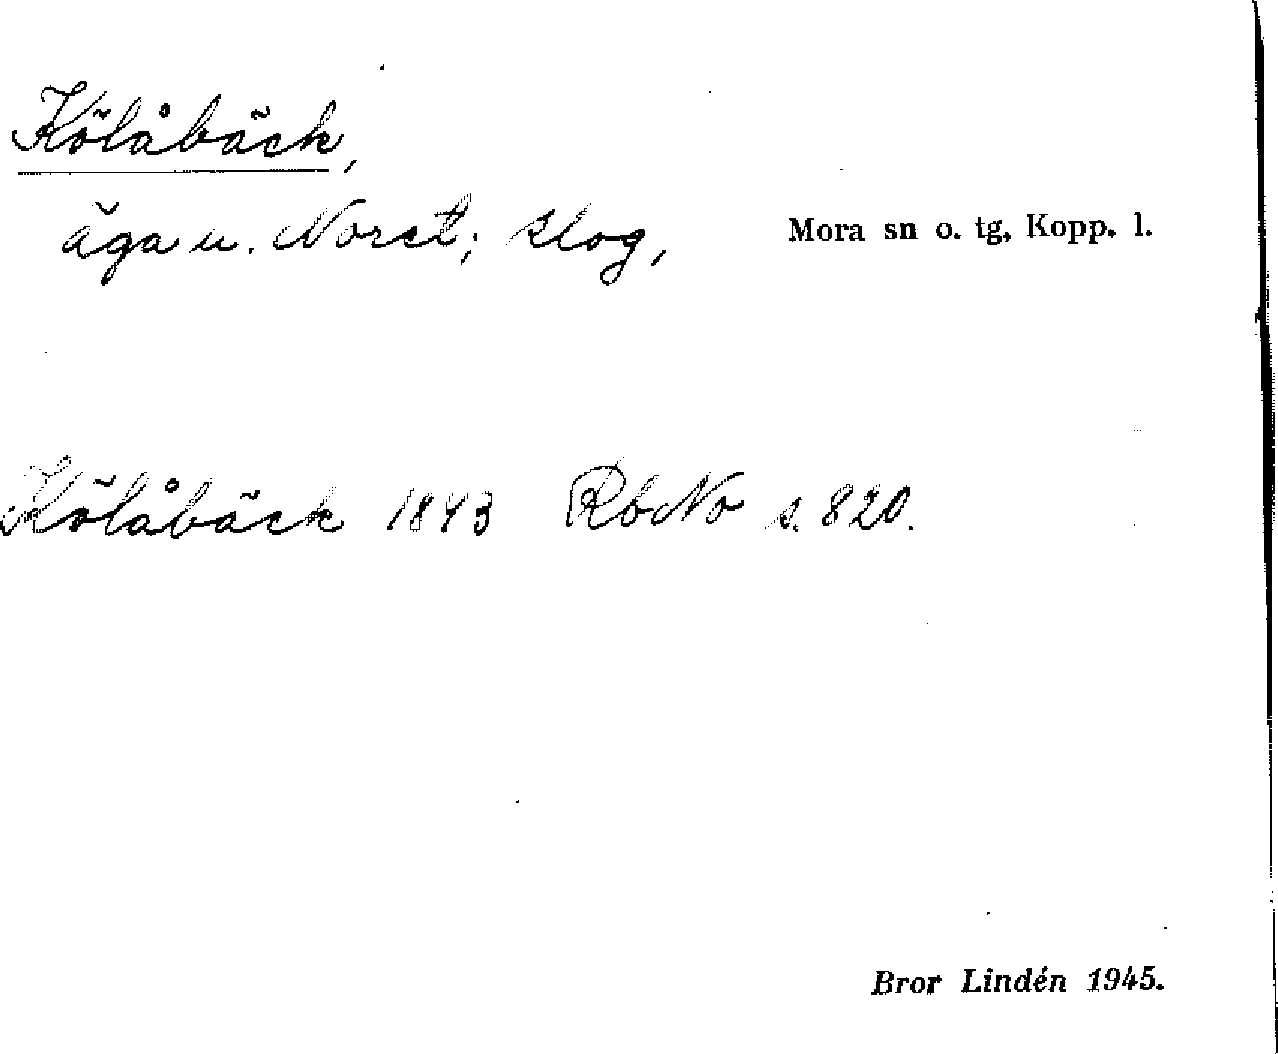 Kölåbäck,
äga u. Noret; skog, Mora sn o. tg, Kopp. l.
Kölåbäck 1843 RbNo s. 820.
Bror Lindén 1945.